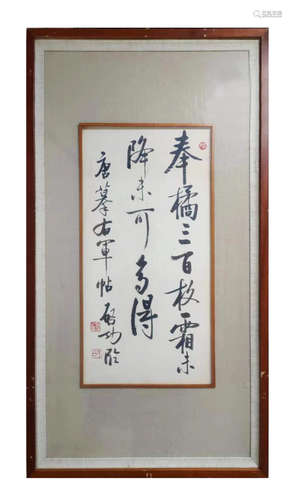 奉橘三百枚霜未
降未可多得
唐摹右軍帖 啓功臨